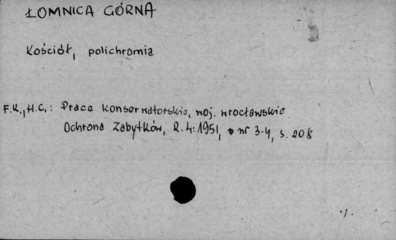 ŁOMNICA GÓRNA
Kościół, polichromia
F.K., H.C.: Prace konserwatorskie, woj. wrocławskie
Ochrona Zabytków, R. 4: 1951, nr 3-4, s. 208